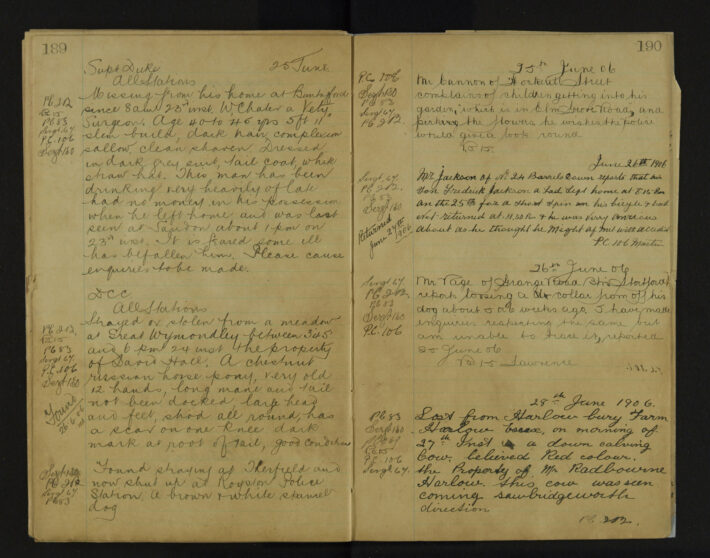 189
Supt Duke 25 June
All Stations
Missing from his home at Buntingford
since 8 am 23rd inst W Chater a Vety
Surgeon. Age 40 to 45 yrs 5 ft 11
slim build, dark hair, complexion
sallow clean shaven Dressed
in dark grey suit, tail coat, white
straw hat. This man has been
drinking very heavily of late
had no money in his possession
when he left home and was last
seen at about 1 pm on
23rd inst. It is feared some ill
has befallen him. Please cause
enquiries to be made.
PC 202
PC 83
Sergt 67
PC 106
Sergt 160
DCC
All Stations
Strayed or stolen from a meadow
at Great Wymondley between 3.45
and 6 pm 24 inst the property
of David Hall. A chestnut
russian horse pony, very old
12 hands, long mane and tail
not been docked, large head
and feet, shod all round, has
a scar on one knee dark
mark at root of tail, good condition
PC 202
PC 83
Sergt 67
PC 106
Sergt 160
Found
Found straying at Therfield and
now shut up at Royston Police
Station. A brown & white spaniel
dog
Sergt 160
PC 202
Sergt 67
PC 83
190
25th June 06
Mr Cannon of Street
complains of children getting into his
garden, which is in Elm Road, and
picking the flowers he wishes the police
would give a look round
PC 106
Sergt 160
PC 83
Sergt 67
PC 202
June 26th 1906
Mr Jackson of No 24 Barrels Down reports that his
Son Fredrick Jackson a Lad Left home at 8.15 Pm
on the 25th for a short spin on his bicycle & had
not returned at 11.30 Pm & he was very anxious
about as he thought he might of met with accident
PC 106 Martin
Sergt 67
PC 202
PC 83
Sergt 160
Returned
June 26th
1906
26th June 06
Mr Page of Grange Road Bps Stortford
report loosing a collar from off his
dog about 5 or 6 weeks ago I have made
inquiries respecting the same but
am unable to trace it, reported
25 June 06
Lawrence
Sergt 67
PC 202
PC 83
Sergt 160
PC 106
28th June 1906.
Lost from Harlow-bury Farm
Harlow Essex, on morning of
27th Inst a down calving
Cow, believed Red colour.
the Property of Mr Radbourne
Harlow. this cow was seen
coming sawbridgeworth
direction
PC 202.
PC 83
Sergt 160
PC 106
Sergt 67